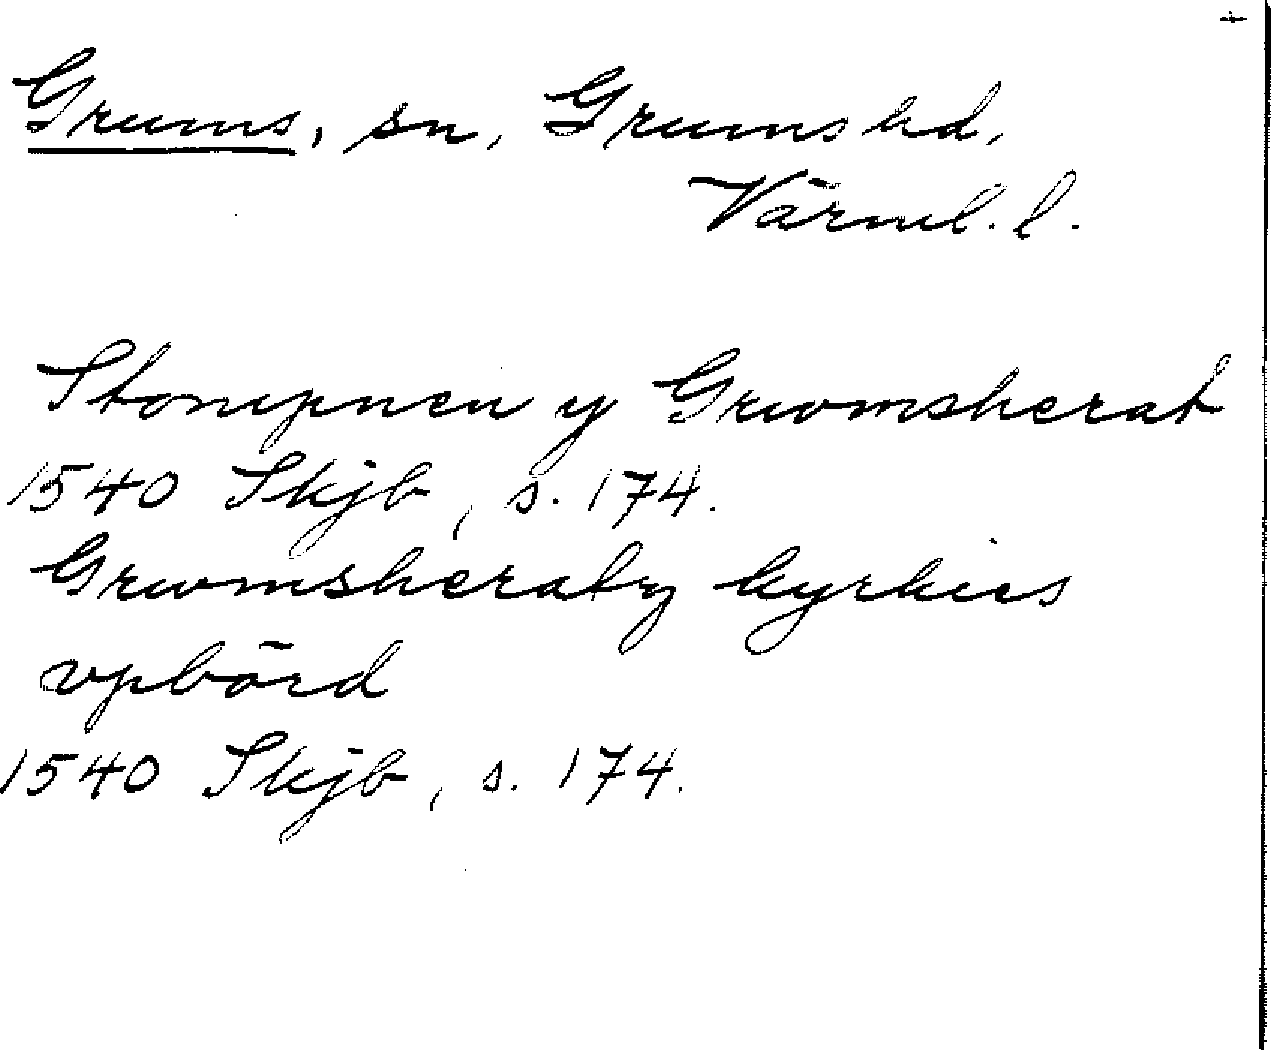 Grums, sn, Grums hd,
Värml. l.
Stompnen y Grwmsherat
1540 Skjb, s. 174.
Grwmsheraty kyrkies
vpbörd
1540 Skjb, s. 174.